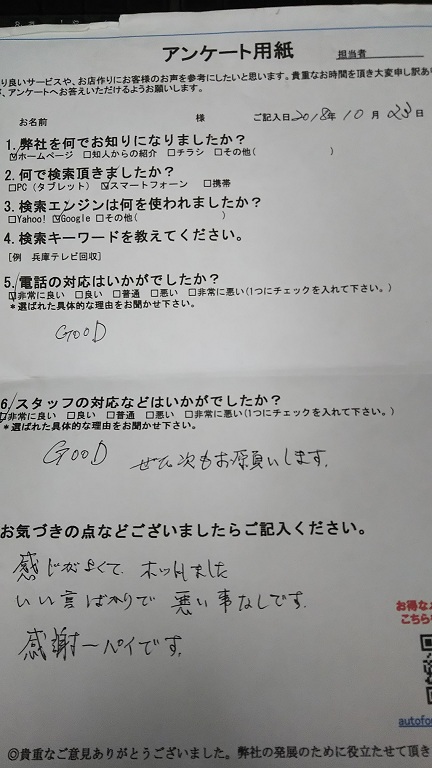 アンケート用紙
担当者
り良いサービスや、お店作りにお客様のお声を参考にしたいと思います。貴重なお時間を頂き大変申し訳あり
が、アンケートへお答えいただけるようお願いします。
お名前 様 ご記入日2018年10月23日
1.弊社を何でお知りになりましたか?
☑ホームページ □知人からの紹介 □チラシ □その他( )
2.何で検索頂きましたか?
□PC(タブレット) ☑スマートフォーン □携帯
3.検索エンジンは何を使われましたか?
□Yahoo! ☑Google □その他( )
4.検索キーワードを教えてください。
[例 兵庫テレビ回収]
5.電話の対応はいかがでしたか?
☑非常に良い □良い □普通 □悪い □非常に悪い(1つにチェックを入れて下さい。)
*選ばれた具体的な理由をお聞かせ下さい。
GOOD
6.スタッフの対応などはいかがでしたか?
☑非常に良い □良い □普通 □悪い □非常に悪い(1つにチェックを入れて下さい。)
*選ばれた具体的な理由をお聞かせ下さい。
GOOD ぜひ次もお願いします。
お気づきの点などございましたらご記入ください。
感じがよくて、ホットしました
いい事ばかりで 悪い事なしです。
感謝一パイです。
お得な
こちら
autofo
◎貴重なご意見ありがとうございました。弊社の発展のために役立たせて頂き